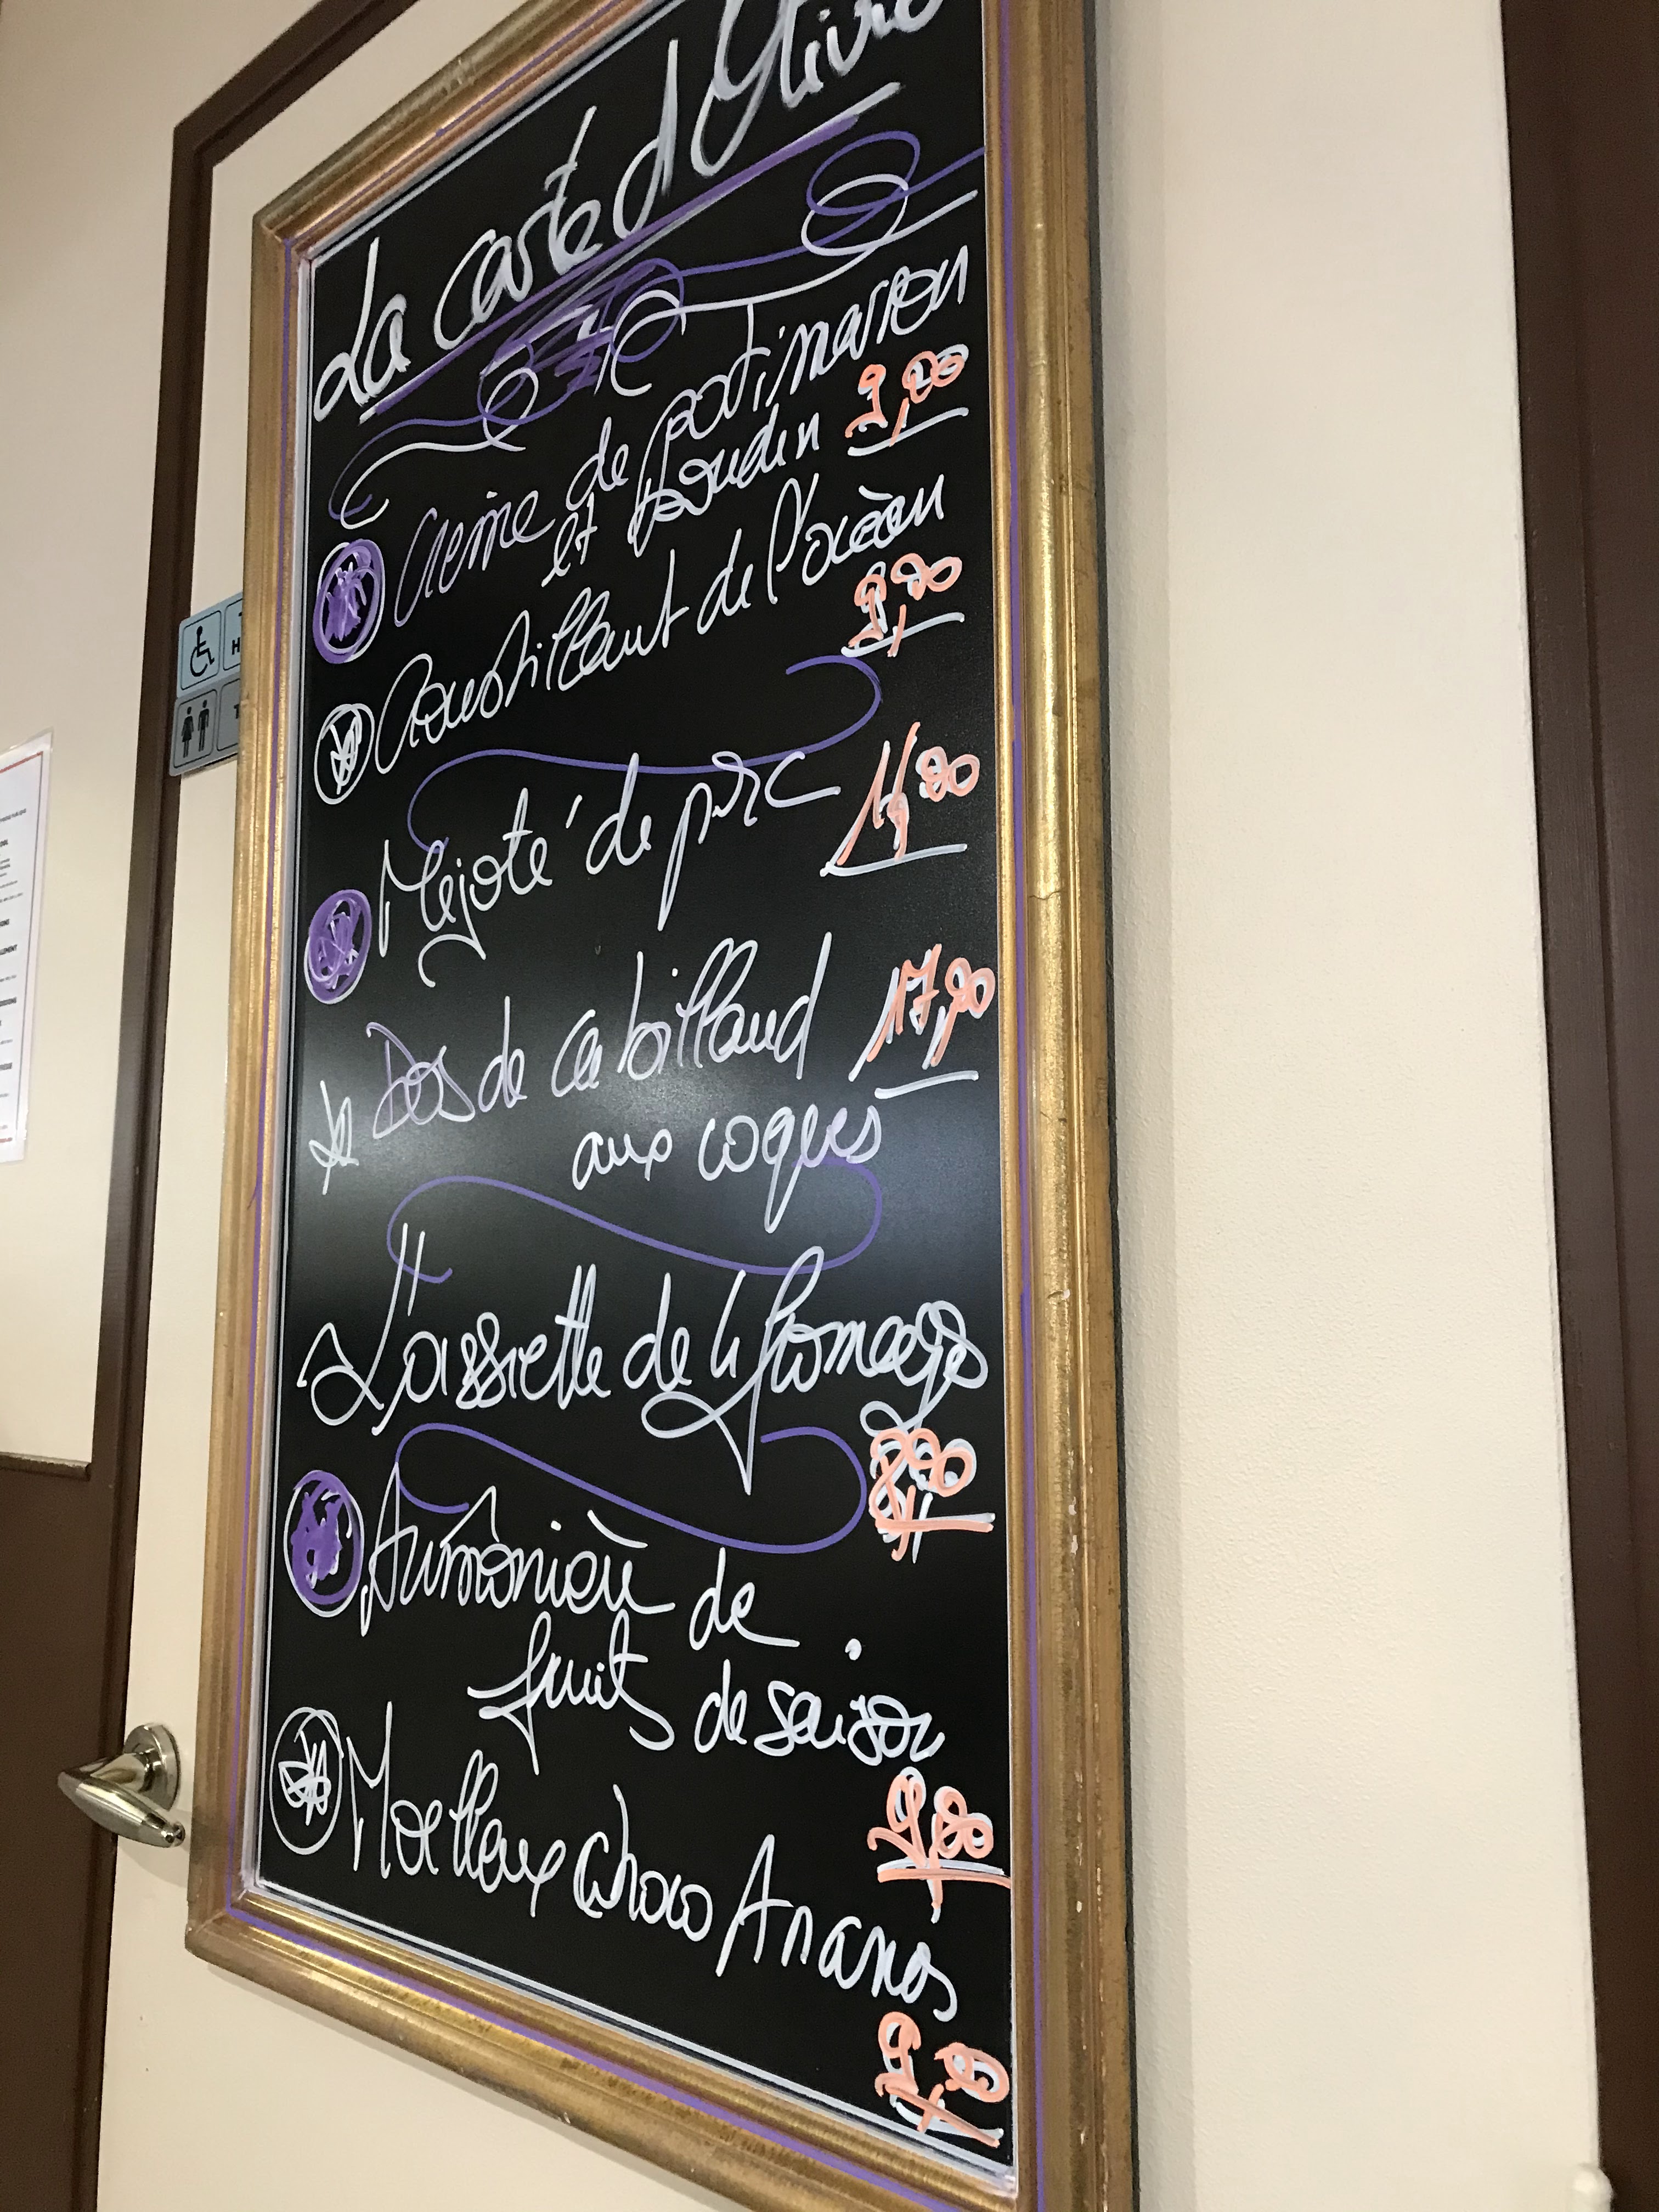 La carte d'Olivia
Crème de potimarron
et boudin 9,90
Croustillant de l'océan
9,90
Mijoté de porc
Dos de cabillaud 17,90
aux coques
L'assiette de 4 fromages
Aumônière de
fruits de saison
9,90
Moelleux choco Ananas
H
T